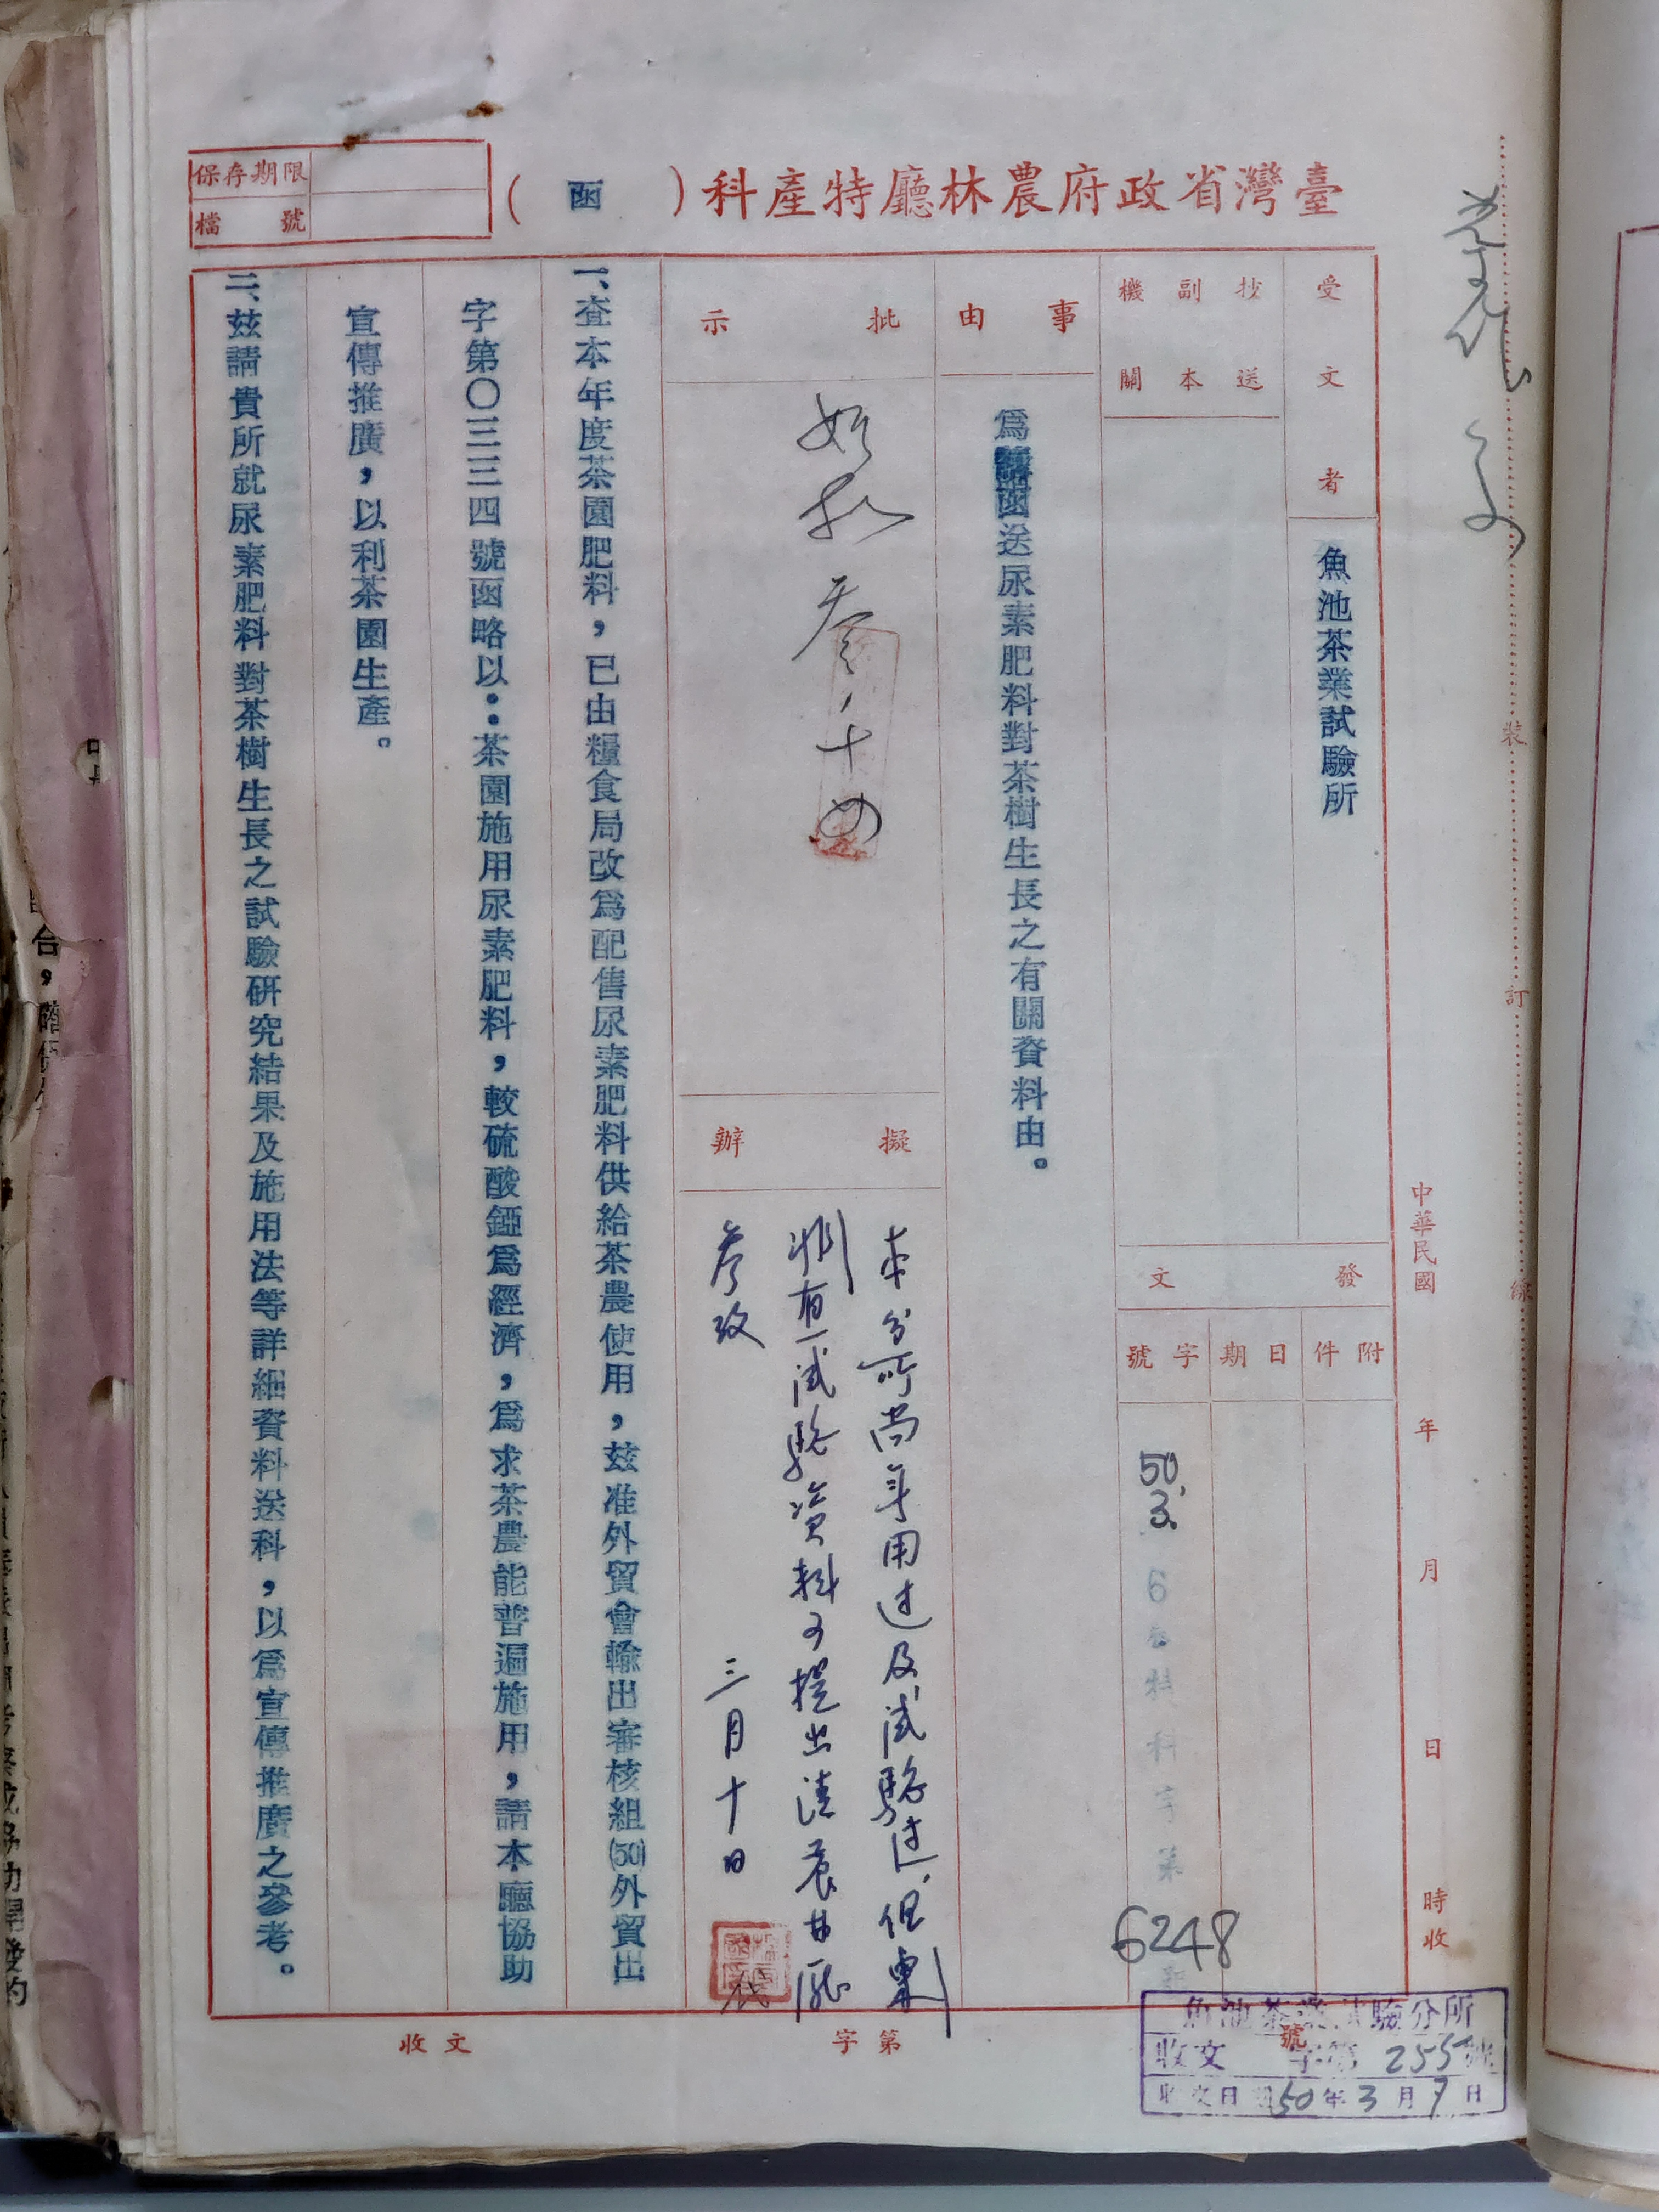 臺灣省政府農林廳特產科（函）
保存期限
檔號
受文者
魚池茶業試驗所
抄送
副本
機關
發文
附件
日期
字號
50.3.6
特科字第
6248
中華民國 年 月 日 時收
事由
為函送尿素肥料對茶樹生長之有關資料由。
批示
如擬
擬辦
本分所尚未用過及試驗過，但
有試驗資料可提出請
參攷
三月十日
一、查本年度茶園肥料，已由糧食局改為配售尿素肥料供給茶農使用，茲准外貿會輸出審核組(50)外貿出
字第〇三三四號函略以：茶園施用尿素肥料，較硫酸錏為經濟，為求茶農能普遍施用，請本廳協助
宣傳推廣，以利茶園生產。
二、茲請貴所就尿素肥料對茶樹生長之試驗研究結果及施用法等詳細資料送科，以為宣傳推廣之參考。
裝
訂
線
收文
字第
號
魚池茶業試驗分所
收文 字第 255 號
收文日期 50年3月7日